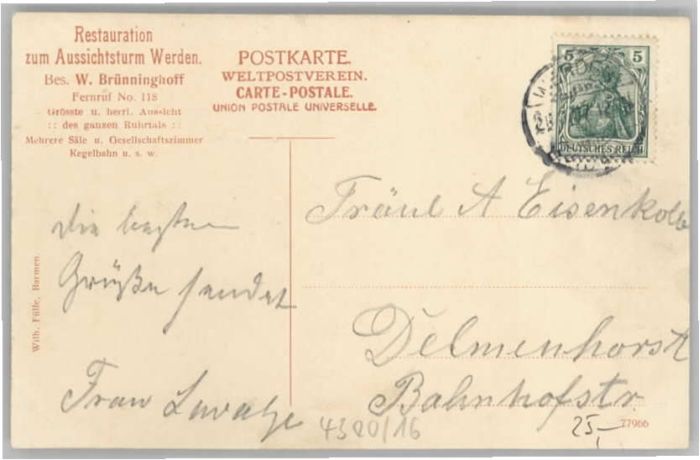 Restauration
zum Aussichtsturm Werden.
Bes. W. Brünninghoff
Fernruf No. 118
Grösste u. herrl. Aussicht
:: des ganzen Ruhrtals ::
Mehrere Säle u. Gesellschaftszimmer
Kegelbahn u. s. w.
POSTKARTE.
WELTPOSTVEREIN.
CARTE-POSTALE.
UNION POSTALE UNIVERSELLE.
5 5
DEUTSCHES REICH
Fräul A Eisenkolb
Delmenhorst
Bahnhofstr.
die besten
Grüße sendet
Frau
Wilh. Fülle, Barmen.
4320/16
25,-
77966